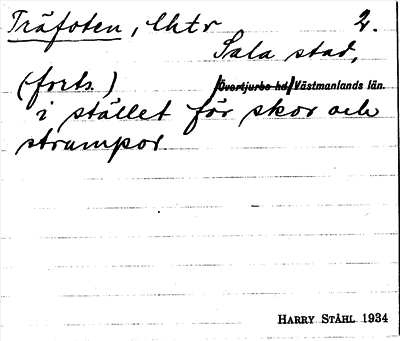 Träfoten, lhtr 2.
Sala stad,
(forts.) /Övertjurbo hd/ Västmanlands län.
i stället för skor och
strumpor.
HARRY STÅHL 1934